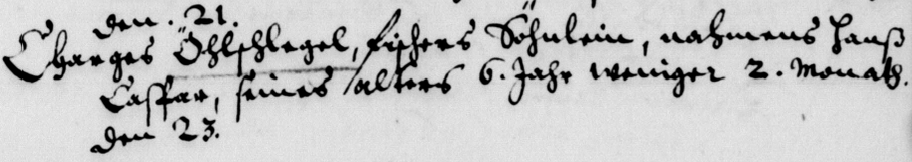 den. 21.
Charges Öhlschlegel, fischers Söhnlein, nahmens Hanß
Caspar, seines alters 6. Jahr weniger 2. Monath.
den 23.